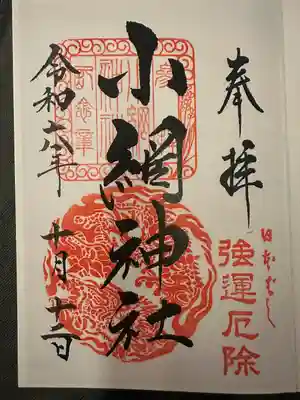 奉拝
日本ばし
強運厄除
小網神社
令和六年
十月十三日